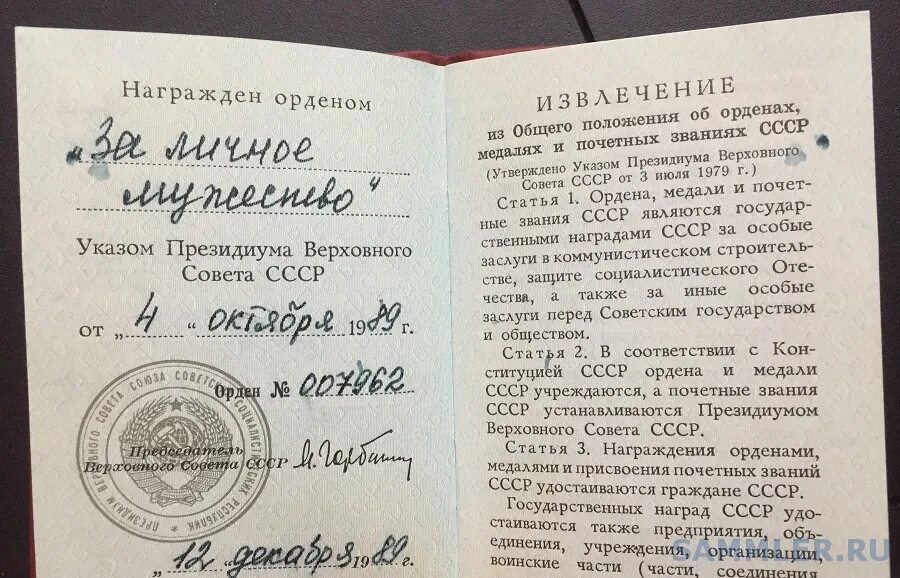 Награжден орденом
„За личное
мужество"
Указом Президиума Верховного
Совета СССР
от „4“ октября 1989 г.
Орден № 007962
Председатель
Верховного Совета СССР М. Горбачев
„12 декабря 1989 г.
ПРЕЗИДИУМ ВЕРХОВНОГО СОВЕТА СОЮЗА СОВЕТСКИХ СОЦИАЛИСТИЧЕСКИХ РЕСПУБЛИК
ИЗВЛЕЧЕНИЕ
из Общего положения об орденах,
медалях и почетных званиях СССР
(Утверждено Указом Президиума Верховного
Совета СССР от 3 июля 1979 г.)
Статья 1. Ордена, медали и почет-
ные звания СССР являются государ-
ственными наградами СССР за особые
заслуги в коммунистическом строитель-
стве, защите социалистического Оте-
чества, а также за иные особые
заслуги перед Советским государством
и обществом.
Статья 2. В соответствии с Кон-
ституцией СССР ордена и медали
СССР учреждаются, а почетные звания
СССР устанавливаются Президиумом
Верховного Совета СССР.
Статья 3. Награждения орденами,
медалями и присвоения почетных званий
СССР удостаиваются граждане СССР.
Государственных наград СССР удо-
стаиваются также предприятия, объ-
единения, учреждения, организации,
воинские части (части, соединения
SAMMLER.RU